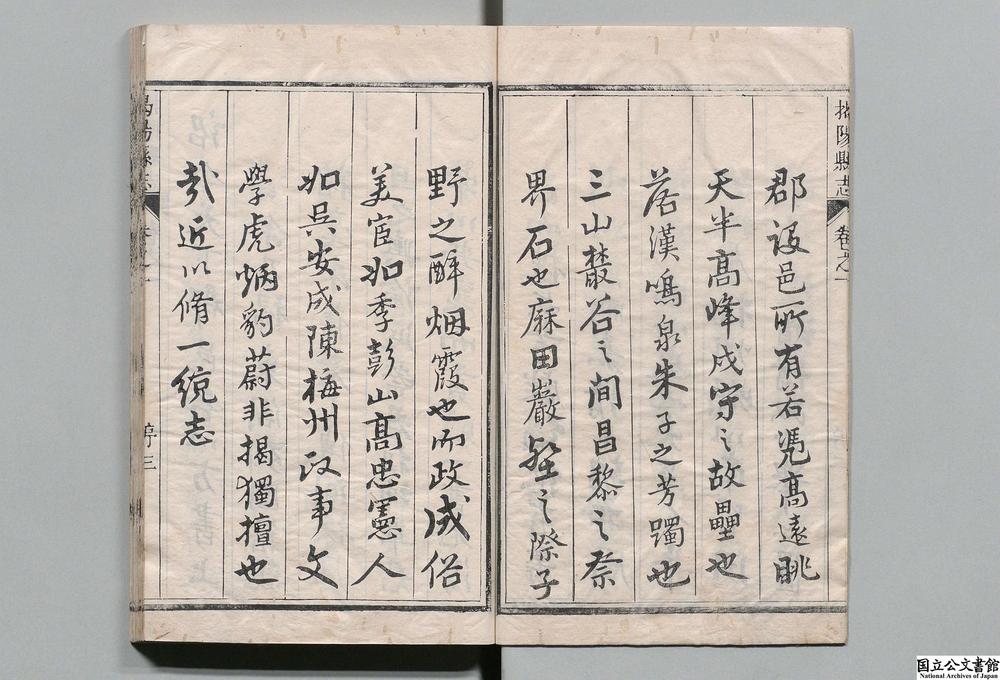 揭陽縣志 卷之一
郡設邑所有若憑高遠眺
天半高峰戍守之故壘也
落漢鳴泉朱子之芳躅也
三山叢谷之間昌黎之祭
界石也麻田巖壑之際子
野之醉烟霞也而政成俗
美宦如季彭山高忠憲人
如吳安成陳梅州政事文
學虎炳豹蔚非揭獨擅也
哉近以脩一統志
揭陽縣志 卷之一 序三
国立公文書館
National Archives of Japan